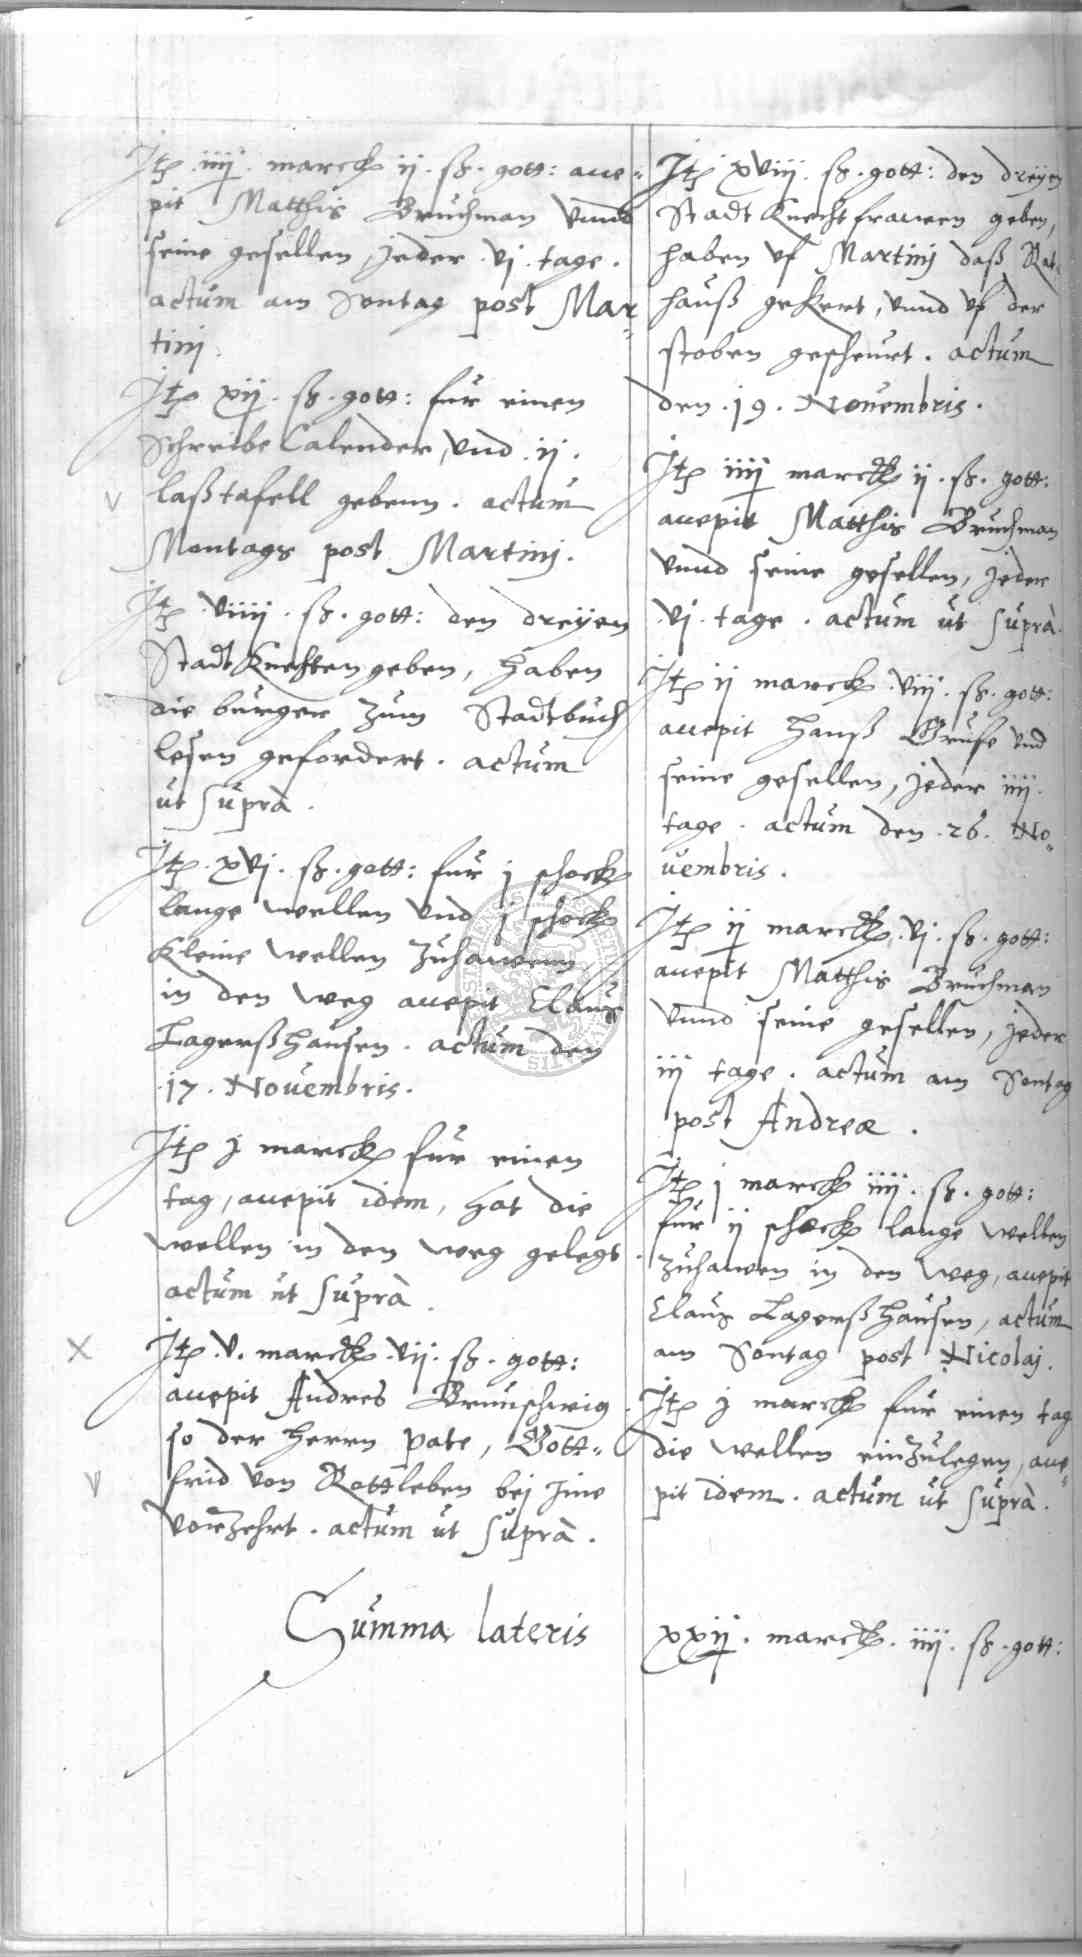 Itē iiij marck ij ß. gott: acce-
pit Matthis Bruchman vnnd
seine gesellen, jeder .vj. tage.
actum am Sontag post Mar-
tinj.
Itē xij. ß. gott: fur einen
Schreibe Calender, vnd .ij.
laßtafell gebenn. actum
Montags post Martinj.
Itē viiij. ß. gott: den dreÿen
Stadt Knechten geben, haben
die burger zum Stadtbuch
lesen gefordert. actum
ut suprà.
Itē. xvj. ß. gott: fur j schock
lange wellen vnd j schock
kleine wellen zuhawenn
in den weg accepit Claus
Lagerßhausen. actum den
17. Nouembris.
Itē j marck fur einen
tag, accepit idem, hat die
wellen in den weg gelegt.
actum ut suprà.
Itē .v. marck .vij. ß. gott:
accepit Andres Brunschwig
so der Herrn pate, Gott-
frid von Rottleben bej jme
vorzehrt. actum ut suprà.
Summa lateris
Itē xviij. ß. gott: den dreÿen
Stadt Knecht frawen geben,
haben vf Martinj daß Rat-
hauß gekert, vnnd vf der
stoben gescheurt. actum
den .19. Nouembris.
Itē iiiij marck ij. ß. gott:
accepit Matthis Bruchman
vnnd seine gesellen, jeder
vj. tage. actum ut suprà.
Itē ij marck .viij. ß. gott:
accepit Hanß Grufe vnd
seine gesellen, jeder iiij.
tage. actum den .26. No-
uembris.
Itē ij marck .vj. ß. gott:
accepit Matthis Bruchman
vnnd seine gesellen, jeder
iij tage. actum am Sontag
post Andreæ.
Itē j marck iiij. ß. gott:
fur ij schock lange wellen
zuhawen in den weg, accepit
Claus Lagerßhausen, actum
am Sontag post Nicolaj.
Itē j marck fur einen tag
die wellen einzulegen, acce-
pit idem. actum ut suprà.
xxij. marck. iiij. ß. gott: